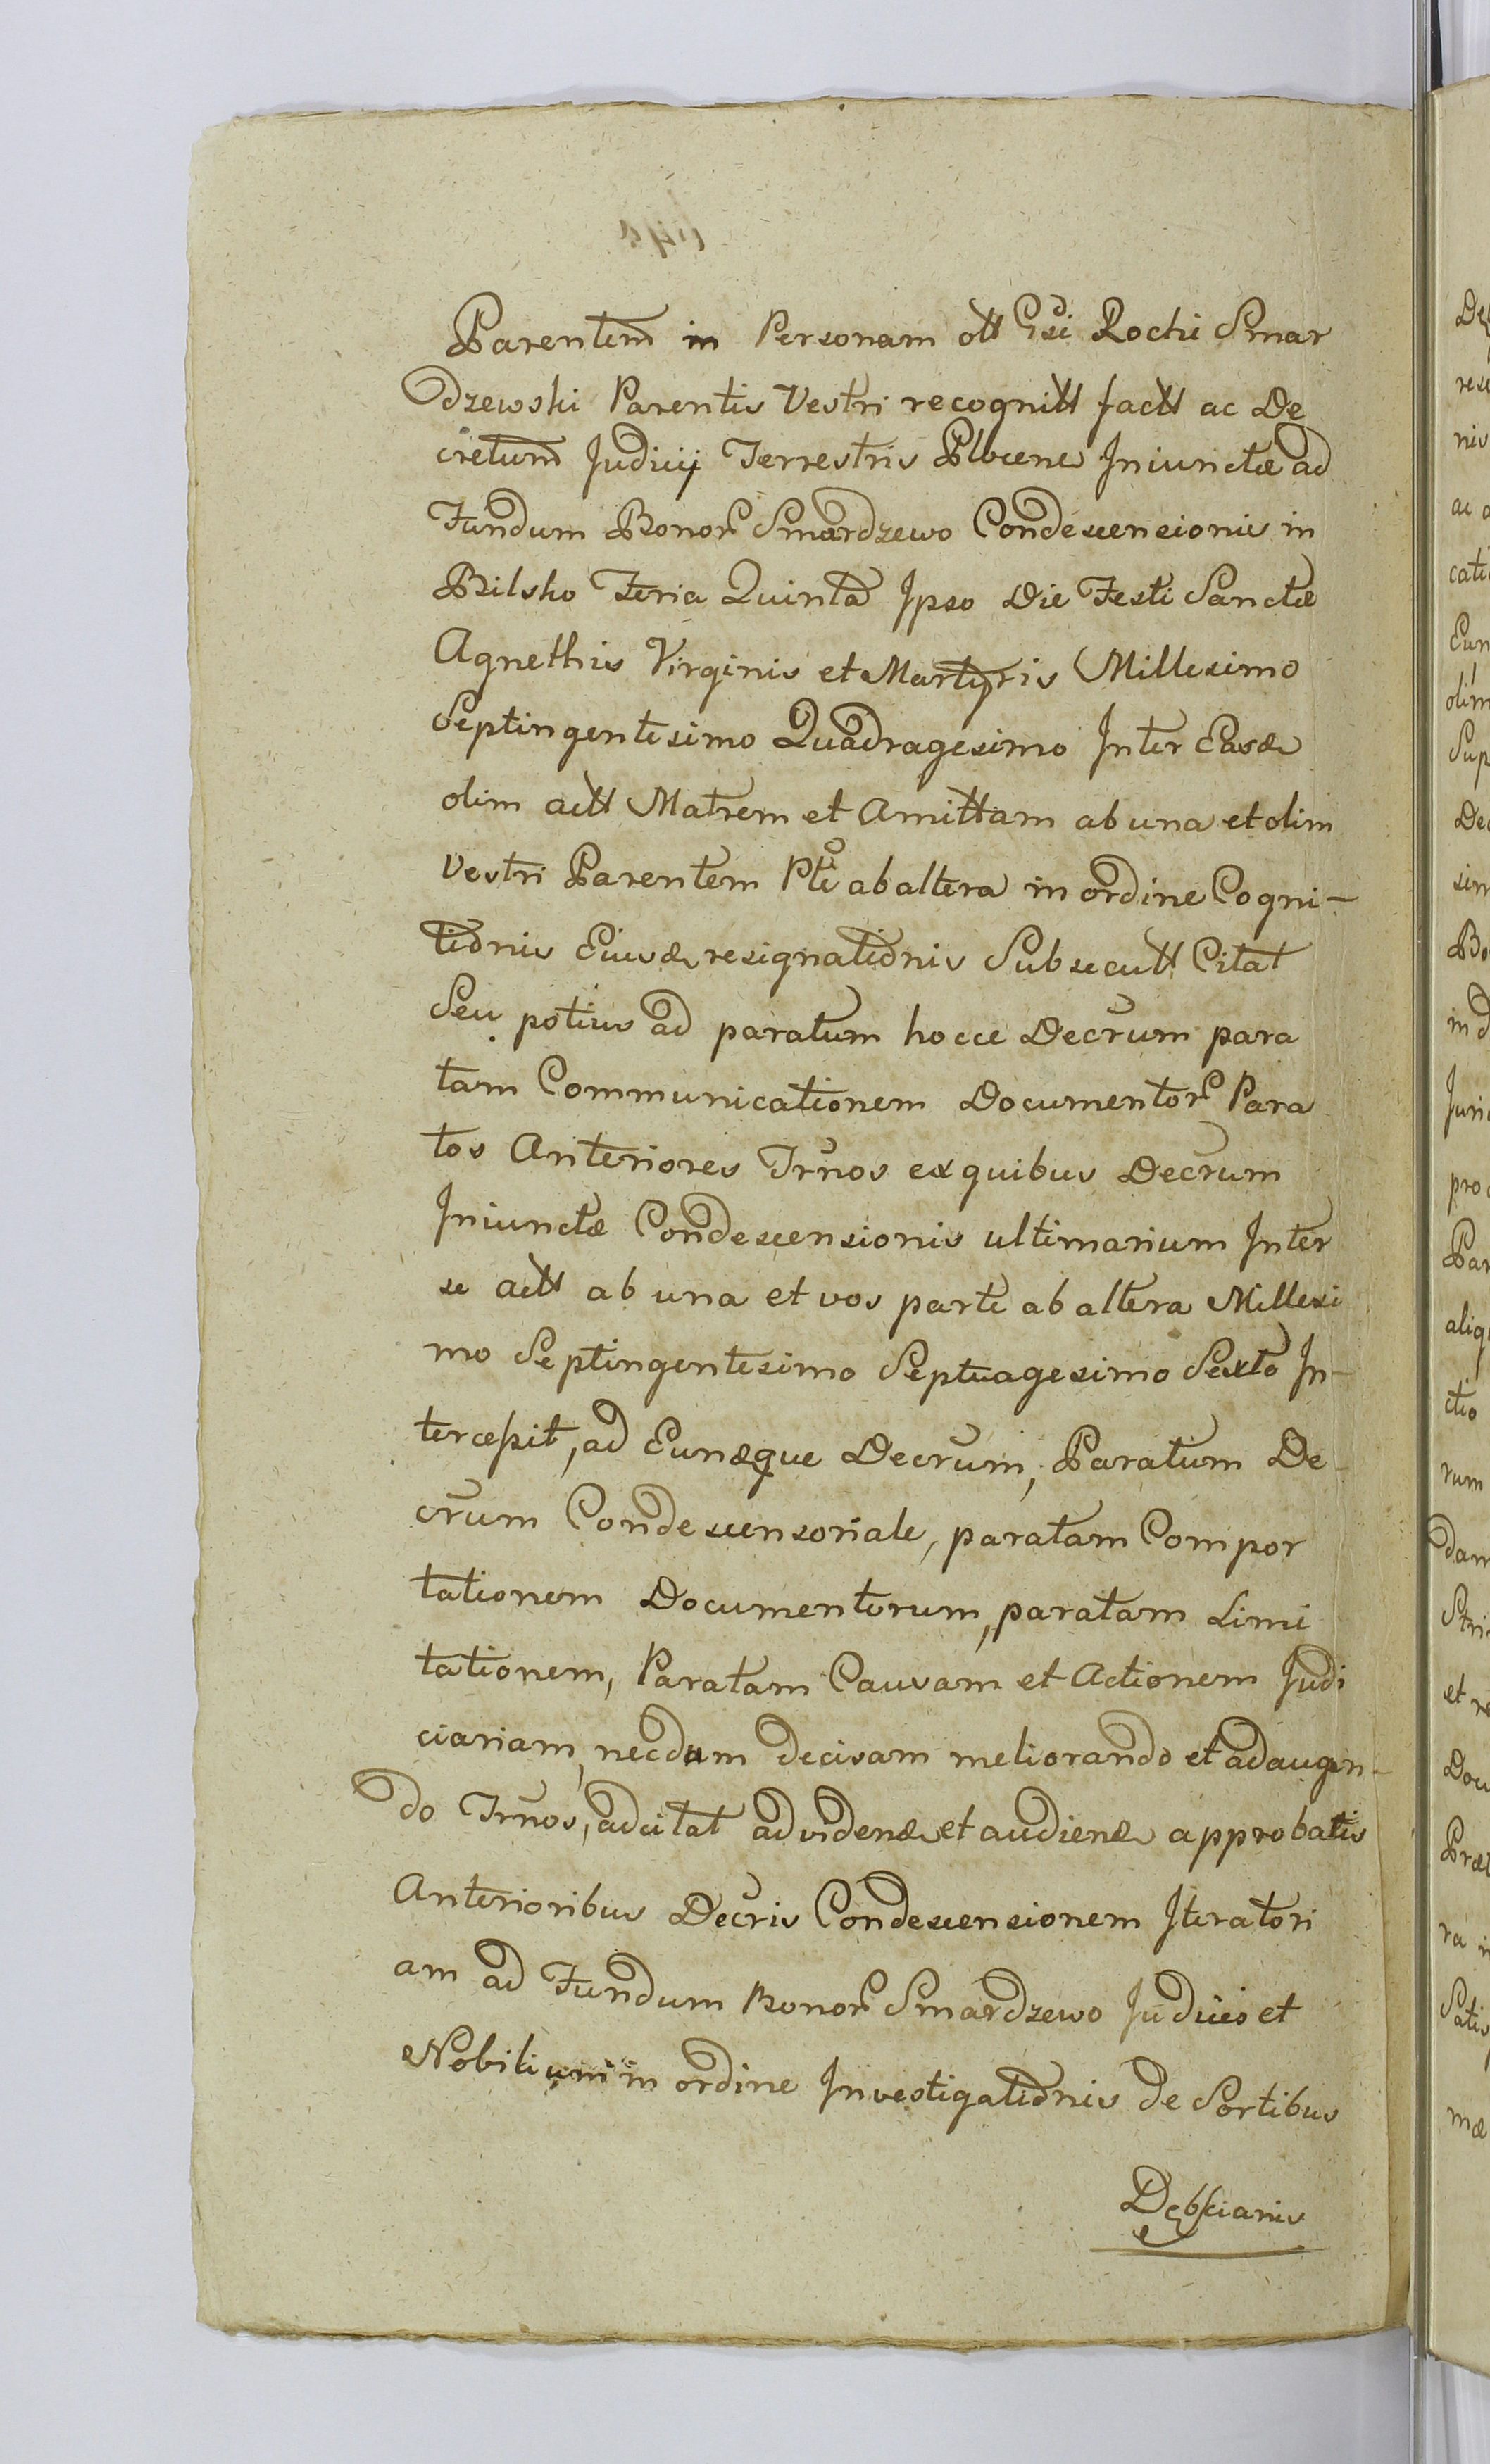 Parentem in Personam olt Gsi Rochi Smar
dzewski Parentis Vestri recognitt factt ac De
cretum Judicij Terrestris Plocene Iniunctæ ad
Fundum Bonor Smardzewo Condescensionis in
Bilsko Feria Quinta Ipso Die Festi Sanctæ
Agnethis Virginis et Martyris Millesimo
Septingentesimo Quadragesimo Inter Easd
olim actt Matrem et Amittam ab una et olim
Vestri Parentem Pte ab altera in ordine Cogni-
tionis Eiusd resignationis Subsecutt Citat
Seu potius ad paratum hocce Decrum para
tam Communicationem Documentor Para
tos Anteriores Trnos ex quibus Decrum
Iniunctæ Condescensionis ultimarium Inter
se actt ab una et vos parte ab altera Millesi
mo Septingentesimo Septuagesimo Sexto In-
tercepit, ad Eundque Decrum, Paratum De-
crum Condescensoriale, paratam Compor
tationem Documentorum, paratam Limi
tationem, Paratam Causam et Actionem Judi
ciariam, necdum decisam meliorando et adaugen-
do Trnos, adcitat ad vidend et audiend approbatis
Anterioribus Decris Condescensionem Iteratori
am ad Fundum Bonor Smardzewo Judicio et
Nobilium in ordine Investigationis de Sortibus
Dębscianis